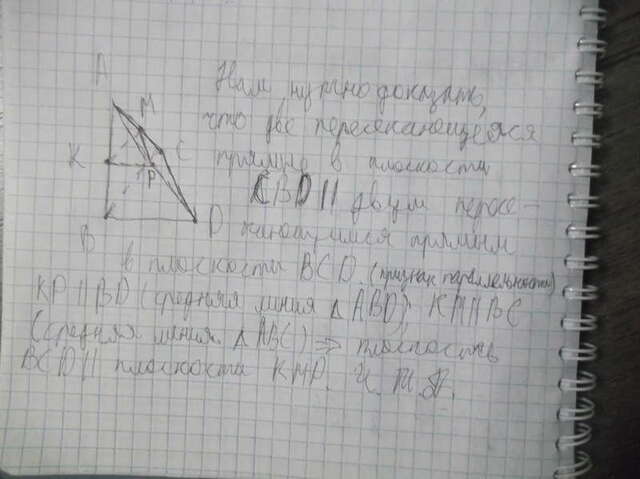 A
M
K
C
P
B
D
Нам нужно доказать,
что две пересекающиеся
прямые в плоскости
CBD || двум пересе-
кающимся прямым
в плоскости BCD (признак параллельности)
KP || BD (средняя линия △ ABD), KM || BC
(средняя линия △ ABC) ⇒ плоскость
BCD || плоскости KMP. Ч.Т.Д.